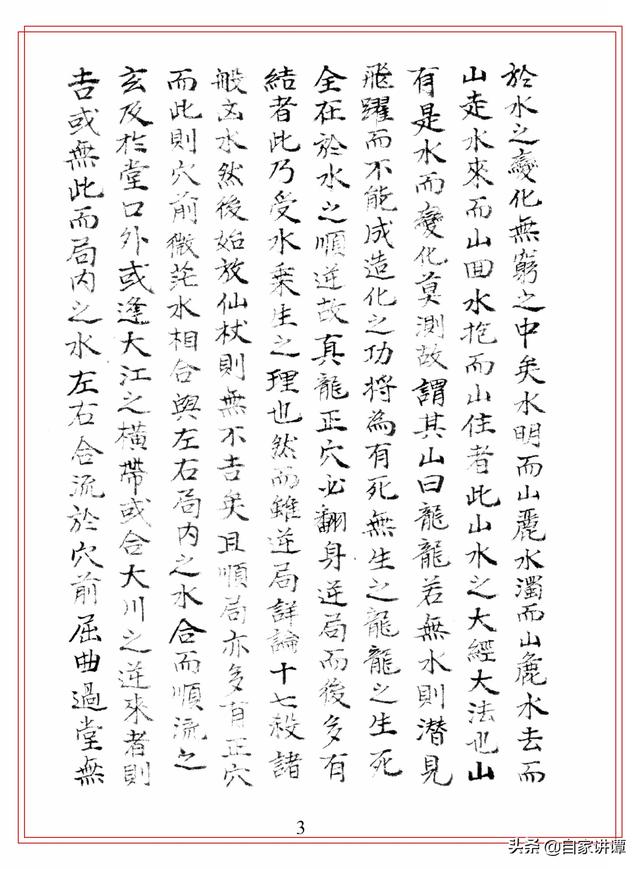 於水之變化無窮之中矣水明而山麗水濁而山麁水去而
山走水來而山囬水抱而山住者此山水之大經大法也山
有是水而變化莫測故謂其山曰龍龍若無水則潜見
飛躍而不能成造化之功將為有死無生之龍龍之生死
全在於水之順逆故真龍正穴必翻身逆局而後多有
結者此乃受水乗生之理也然而雖逆局詳論十七殺諸
般凶水然後始放仙杖則無不吉矣且順局亦多有正穴
而此則穴前微茫水相合與左右局内之水合而順流之
玄及於堂口外或逢大江之横帶或合大川之逆來者則
吉或無此而局内之水左右合流於穴前屈曲過堂無
3
头条 @自家讲谭